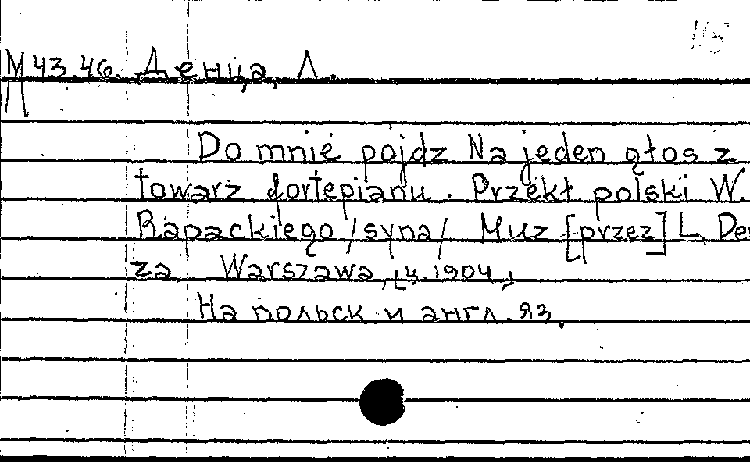 115
М 43.46. Денца, Л.
П
Do mnie pojdz Na jeden głos z
towarz fortepianu. Przekł polski W.
Rapackiego /syna/ Muz [przez] L Den
za Warszawa, [4.1904,]
На польск и англ. яз.